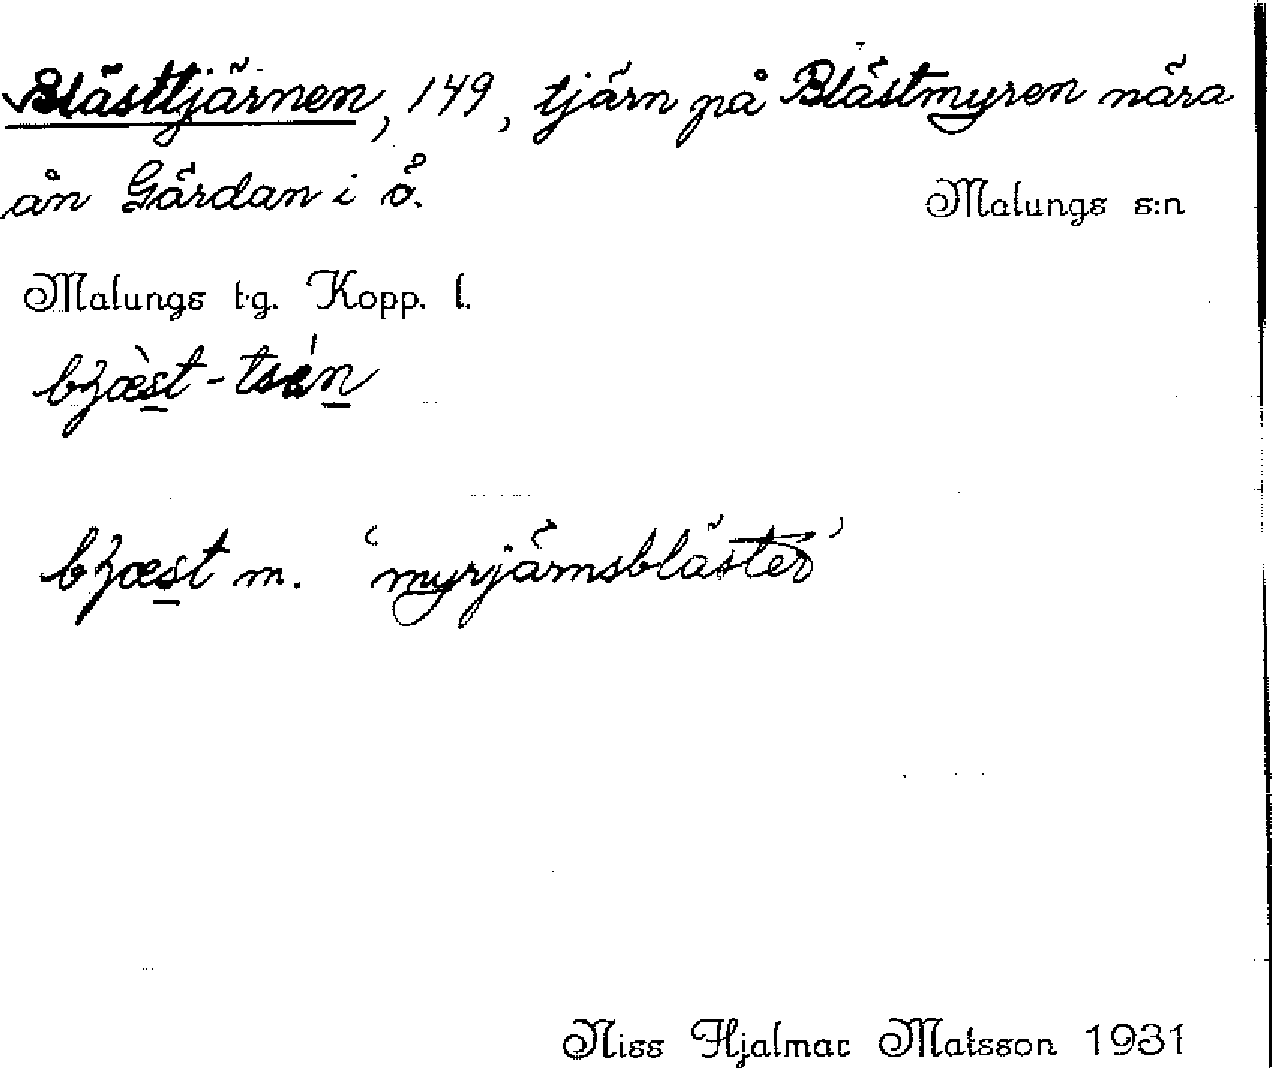 Blästtjärnen, 149, tjärn på Blästmyren nära
ån Gärdan i ö.
Malungs s:n
Malungs t·g. Kopp. l.
bȝæ̀st-tsán
bȝæst m. 'myrjärnsbläster'
Niss Hjalmar Matsson 1931